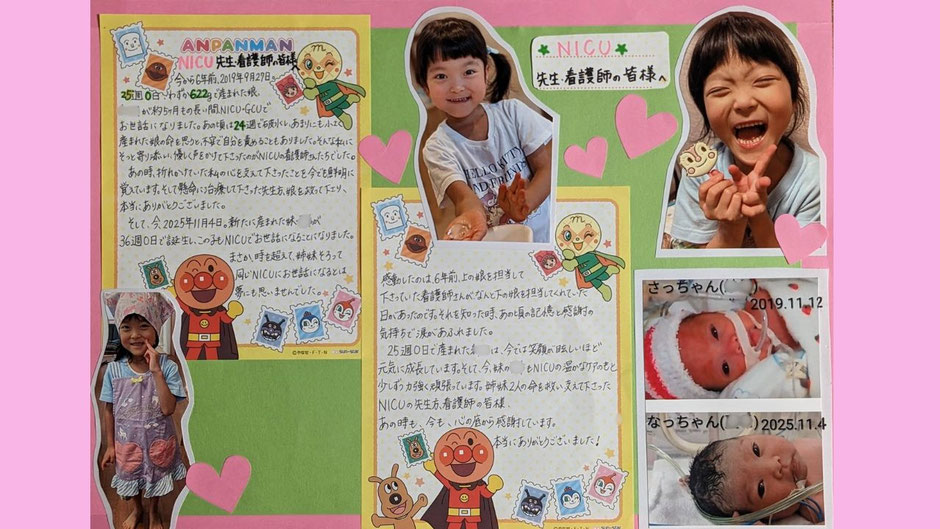 ANPANMAN
NICU 先生・看護師の皆様へ
今から6年前、2019年9月29日。
25週0日、わずか622gで産まれた娘。
が約5ヶ月もの長い間NICU・GCUで
お世話になりました。あの頃は24週で破水し、あまりにも小さく
産まれた娘の命を思うと、不安で自分を責めることもありました。そんな私に
そっと寄り添い、優しく声をかけて下さったのがNICUの看護師さんたちでした。
あの時、折れかけていた私の心を支えて下さったことを今でも鮮明に
覚えています。そして懸命に治療して下さった先生方、娘を救って下さり、
本当にありがとうございました。
そして、今、2025年11月4日。新たに産まれた妹 が
36週0日で誕生し、この子もNICUでお世話になることになりました。
まさか、時を超えて、姉妹そろって
同じNICUにお世話になるとは
夢にも思いませんでした。
NICU
先生・看護師の皆様へ
HELLO KITTY
AND FRIENDS
感動したのは、6年前、上の娘を担当して
下さっていた看護師さんが、なんと下の娘を担当してくれていた
日があったのです。それを知った時、あの頃の記憶と感謝の
気持ちで涙があふれました。
25週0日で産まれた は、今では笑顔が眩しいほど
元気に成長しています。そして、今、妹の もNICUの温かなケアのもと
少しずつ力強く頑張っています。姉妹2人の命を救い、支えて下さった
NICUの先生方、看護師の皆様、
あの時も、今も、心の底から感謝しています。
本当にありがとうございました!
さっちゃん( )
2019.11.12
なっちゃん( )2025.11.4